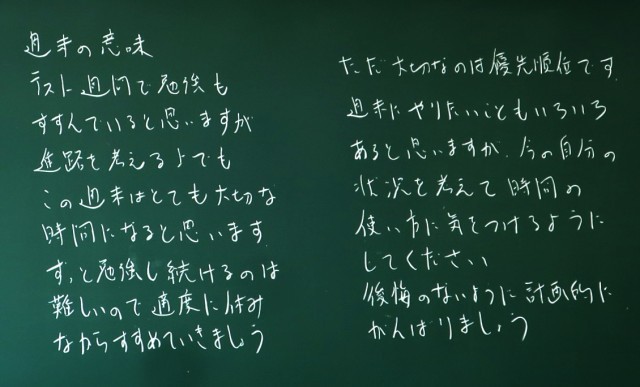 週末の意味
テスト週間で勉強も
すすんでいると思いますが
進路を考える上でも
この週末はとても大切な
時間になると思います
ずっと勉強し続けるのは
難しいので適度に休み
ながらすすめていきましょう
ただ大切なのは優先順位です
週末にやりたいこともいろいろ
あると思いますが、今の自分の
状況を考えて時間の
使い方に気をつけるように
してください
後悔のないように計画的に
がんばりましょう